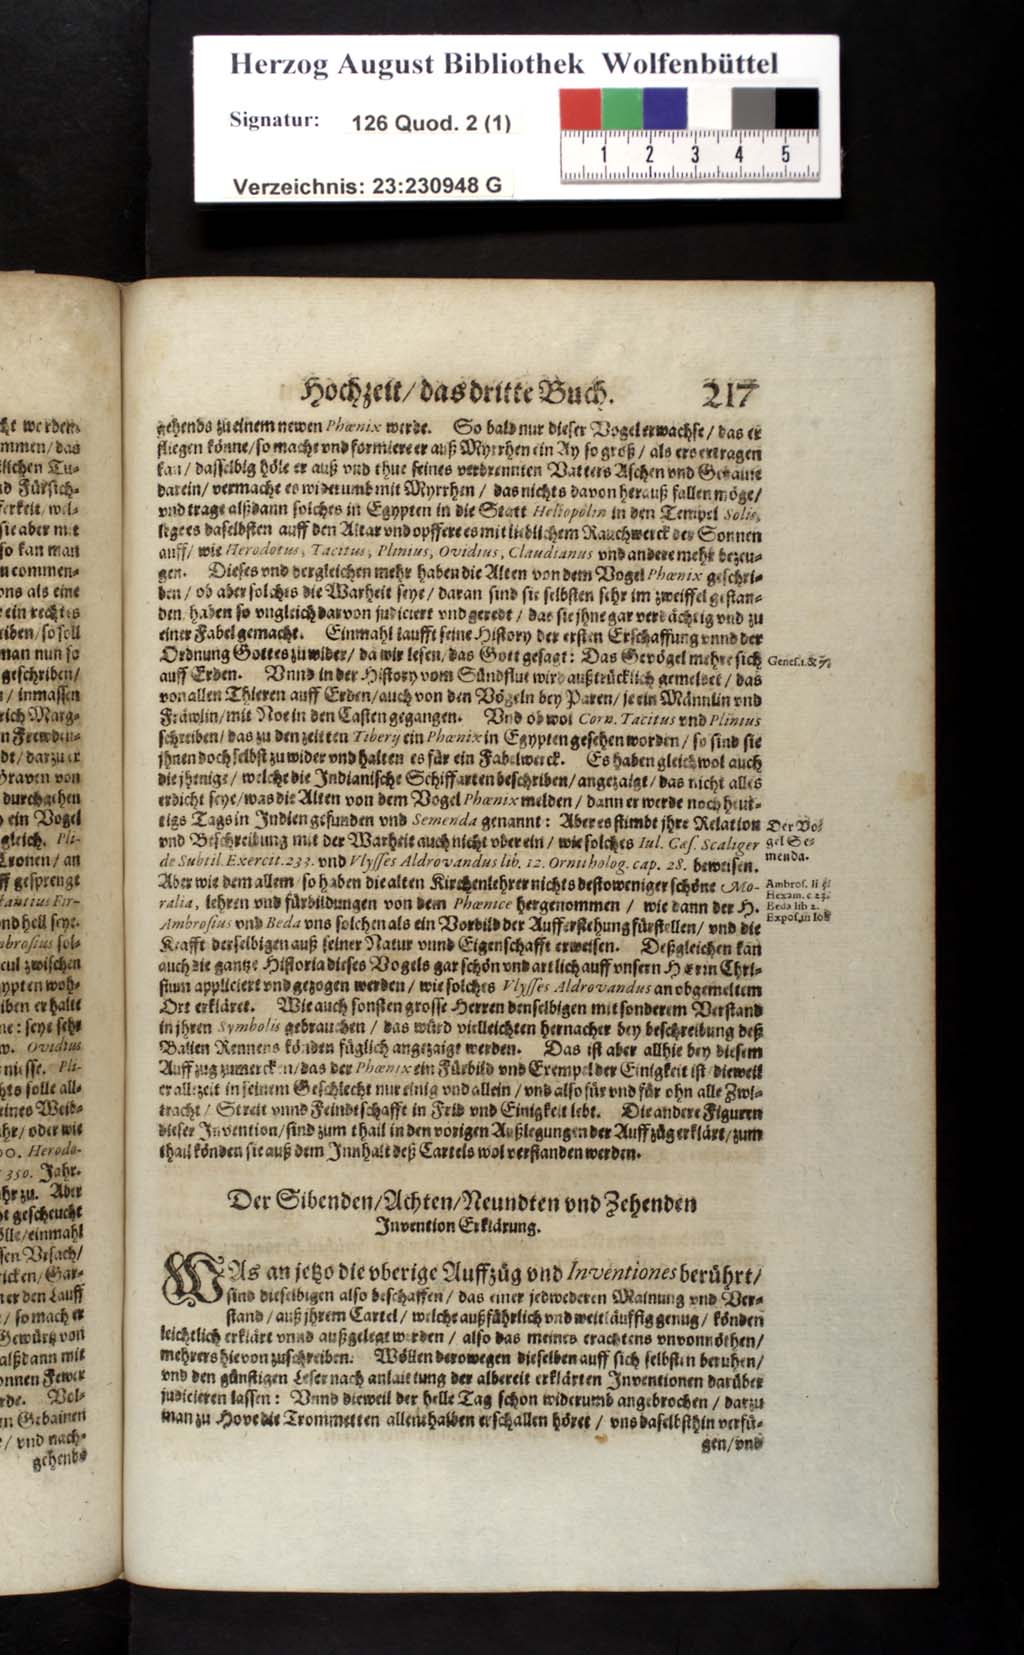 Herzog August Bibliothek Wolfenbüttel
Signatur: 126 Quod. 2 (1)
1 2 3 4 5
Verzeichnis: 23:230948 G
Hochzeit/ das dritte Buch. 217
gehends zu einem newen Phœnix werde. So bald nur dieser Vogel erwachse/ das er
fliegen könne/ so mache vnd formiere er auß Myrrhen ein Ay so groß/ als er ertragen
kan/ dasselbig höle er auß vnd thue seines verbrennten Vatters Aschen vnd Gebaine
darein/ vermache es widerumb mit Myrrhen/ das nichts davon herauß fallen möge/
vnd trage alßdann solches in Egypten in die Statt Heliopolin in den Tempel Solis,
lege es daselbsten auff den Altar vnd opffere es mit lieblichem Rauchwerck der Sonnen
auff/ wie Herodotus, Tacitus, Plinius, Ovidius, Claudianus vnd andere mehr bezeu-
gen. Dieses vnd dergleichen mehr haben die Alten von dem Vogel Phœnix geschri-
ben/ ob aber solches die Warheit seye/ daran sind sie selbsten sehr im zweiffel gestan-
den, haben so vngleich darvon judiciert vnd geredt/ das sie jhne gar verdächtig vnd zu
einer Fabel gemacht. Einmahl laufft seine History der ersten Erschaffung vnnd der
Ordnung Gottes zu wider/ da wir lesen/ das Gott gesagt: Das Gevögel mehre sich
auff Erden. Vnnd in der History vom Sündflut wird außtrücklich gemeldet/ das
von allen Thieren auff Erden/ auch von den Vögeln bey Paren/ je ein Männlin vnd
Fräwlin/ mit Noe in den Casten gegangen. Vnd ob wol Corn. Tacitus vnd Plinius
schreiben/ das zu den zeitten Tiberij ein Phœnix in Egypten gesehen worden/ so sind sie
jhnen doch selbst zu wider vnd halten es für ein Fabelwerck. Es haben gleichwol auch
die jhenige/ welche die Indianische Schiffarten beschriben/ angezaigt/ das nicht alles
erdicht seye/ was die Alten von dem Vogel Phœnix melden/ dann er werde noch heut-
tigs Tags in Indien gefunden vnd Semenda genannt: Aber es stimbt jhre Relation
vnd Beschreibung mit der Warheit auch nicht vber ein/ wie solches Iul. Cæs. Scaliger
de Subtil. Exercit. 233. vnd Vlysses Aldrovandus lib. 12. Ornitholog. cap. 28. beweisen.
Aber wie dem allem/ so haben die alten Kirchenlehrer nichts destoweniger schöne Mo-
ralia, lehren vnd fürbildungen von dem Phœnice hergenommen/ wie dann der H.
Ambrosius vnd Beda vns solchen als ein Vorbild der Aufferstehung fürstellen/ vnd die
Krafft derselbigen auß seiner Natur vnnd Eigenschafft erweisen. Deßgleichen kan
auch die gantze Historia dieses Vogels gar schön vnd artlich auff vnsern HErrn Chri-
stum appliciert vnd gezogen werden/ wie solches Vlysses Aldrovandus an obgemeltem
Ort erkläret. Wie auch sonsten grosse Herren denselbigen mit sonderem Verstand
in jhren Symbolis gebrauchen/ das würd vielleichten hernacher bey beschreibung deß
Balien Rennens könden füglich angezaigt werden. Das ist aber allhie bey diesem
Auffzug zumercken/ das der Phœnix ein Fürbild vnd Exempel der Einigkeit ist/ dieweil
er allzeit in seinem Geschlecht nur einig vnd allein/ vnd also für vnd für ohn alle Zwi-
tracht/ Streit vnnd Feindtschafft in Frid vnd Einigkeit lebt. Die andere Figuren
dieser Invention/ sind zum thail in den vorigen Außlegungen der Auffzüg erklärt/ zum
thail könden sie auß dem Innhalt deß Cartels wol verstanden werden.
Genes. 1. & 7.
Der Vo-
gel Se-
menda.
Ambros. li
Hexam. c 23.
Beda lib 2.
Expos. in Iob
Der Sibenden/ Achten/ Neundten vnd Zehenden
Invention Erklärung.
WAs an jetzo die vberige Auffzüg vnd Inventiones berührt/
sind dieselbigen also beschaffen/ das einer jedwederen Mainung vnd Ver-
stand/ auß jhrem Cartel/ welche außführlich vnd weitläuffig genug/ könden
leichtlich erklärt vnnd außgelegt werden/ also das meines erachtens vnvonnöthen/
mehrers hievon zuschreiben. Wöllen derowegen dieselben auff sich selbsten beruhen/
vnd den günstigen Leser nach anlaittung der albereit erklärten Inventionen darüber
judicieren lassen: Vnnd dieweil der helle Tag schon widerumb angebrochen/ darzu
man zu Hove die Trommetten allenthalben erschallen höret/ vns daselbsthin verfü-
gen/ vnd